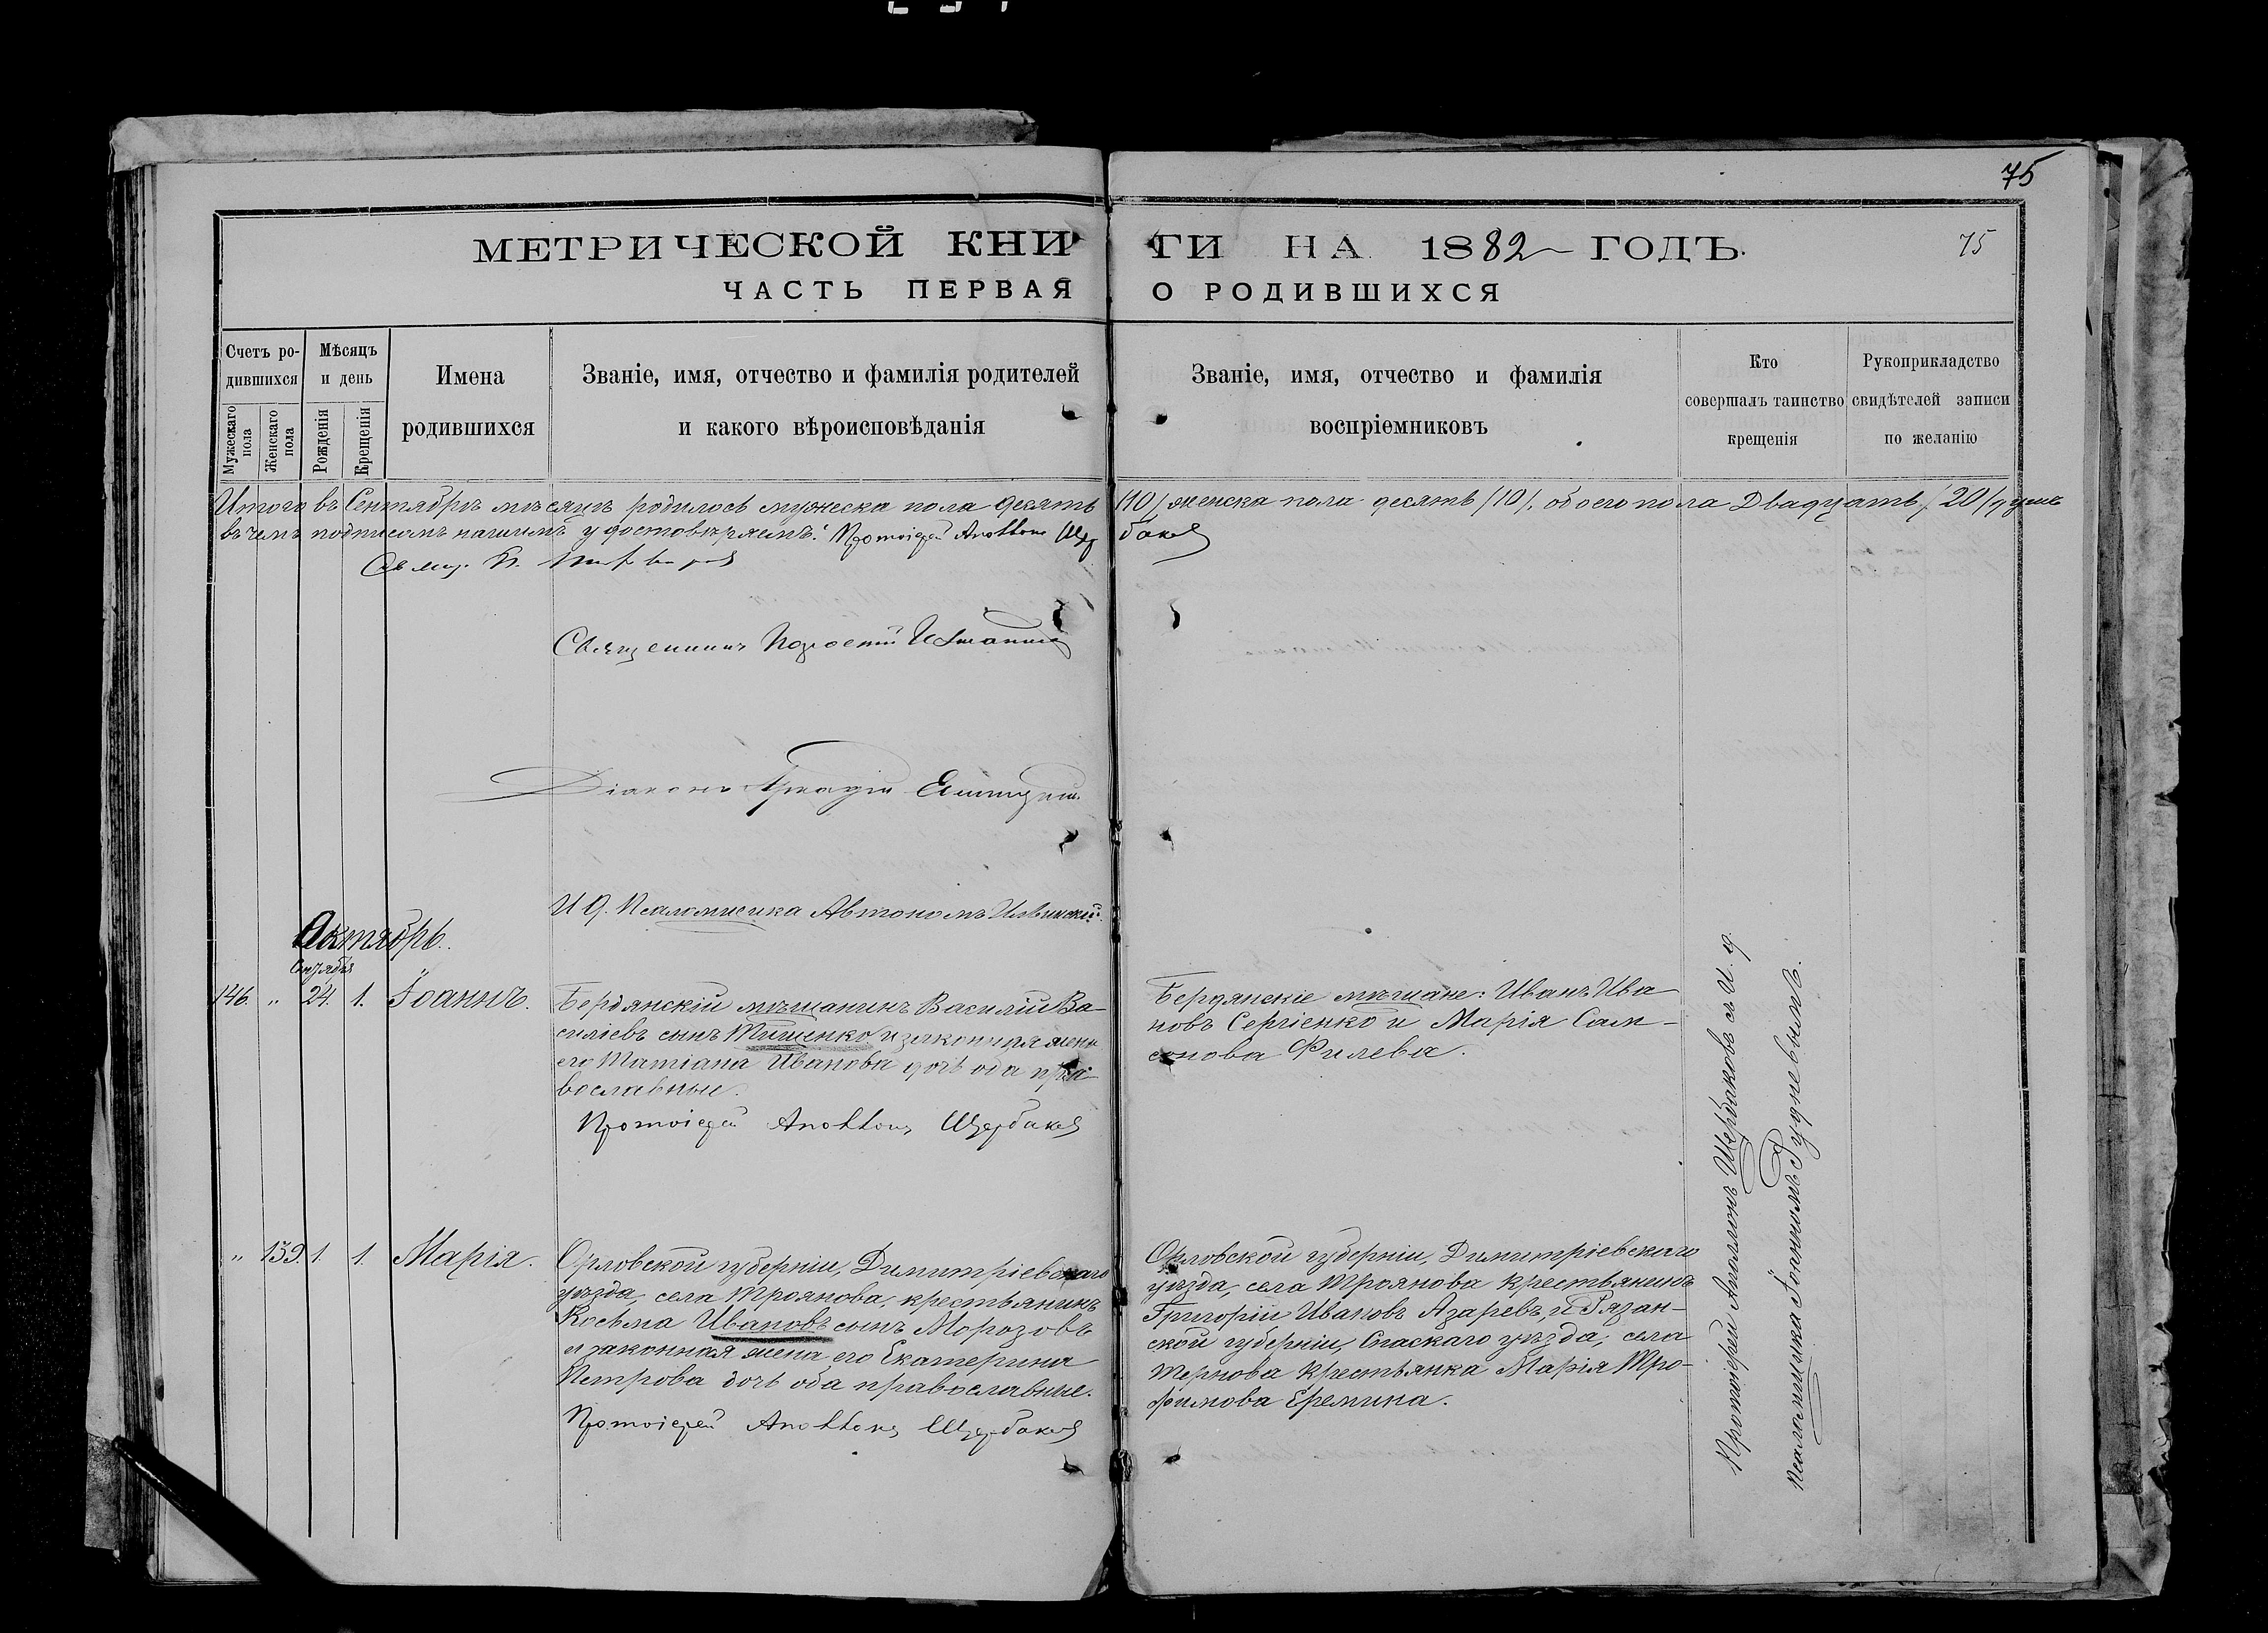 75
МЕТРИЧЕСКОЙ КНИГИ НА 1882 ГОДЪ.
75
ЧАСТЬ ПЕРВАЯ О РОДИВШИХСЯ
Счетъ родившихся
Мужескаго пола
Женскаго пола
Мѣсяцъ и день
Рожденія
Крещенія
Имена родившихся
Званіе, имя, отчество и фамилія родителей
и какого вѣроисповѣданія
Званіе, имя, отчество и фамилія
воспріемниковъ
Кто
совершалъ таинство
крещенія
Рукоприкладство
свидѣтелей записи
по желанію
Итого въ Сентябрѣ мѣсяцѣ родилось мужеска пола десять /10/ женска пола десять /10/, обоего пола Двадцать /20/ душъ
въ чемъ подписомъ нашимъ удостовѣряемъ: Протоіерей Аполлонъ Щербаковъ
Священникъ
Діаконъ Аркадій
И. д. Псаломщика Автономъ Ильинскій.
Октябрь.
Сентября
146. " 24. 1. Іоаннъ.
Бердянскій мѣщанинъ Василій Ва-
силіевъ сынъ Тищенко и законная жена
его Татіана Иванова дочь оба пра-
вославные.
Протоіерей Аполлонъ Щербаковъ
Бердянскіе мѣщане: Иванъ Ива-
новъ Сергіенко и Марія Сам-
сонова Филева.
" 139. 1. 1. Марія.
Орловской губерніи, Димитріевскаго
уѣзда, села Троянова, крестьянинъ
Косьма Ивановъ сынъ Морозовъ
и законная жена его Екатерина
Петрова дочь оба православные.
Протоіерей Аполлонъ Щербаковъ
Орловской губерніи, Димитріевскаго
уѣзда, села Троянова крестьянинъ
Григорій Ивановъ Азаревъ, и Рязан-
ской губерніи, Спаскаго уѣзда, села
Тернова крестьянка Марія Тро-
фимова Еремина.
Протоіерей Аполлонъ Щербаковъ съ И. д.
Псаломщика Іоанномъ Рудневымъ.